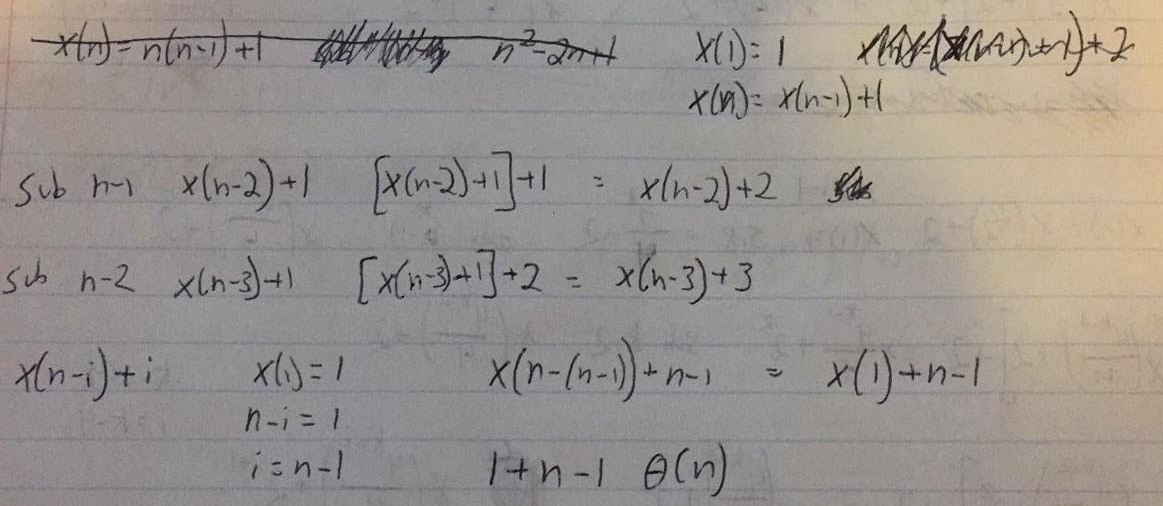 x(n) = n(n-1)+1 n²-2n+1 x(1) = 1
x(n) = x(n-1)+1
Sub n-1 x(n-2)+1 [x(n-2)+1]+1 = x(n-2)+2
sub n-2 x(n-3)+1 [x(n-3)+1]+2 = x(n-3)+3
x(n-i)+i x(1) = 1 x(n-(n-1))+n-1 = x(1)+n-1
n-i = 1
i = n-1 1+n-1 θ(n)